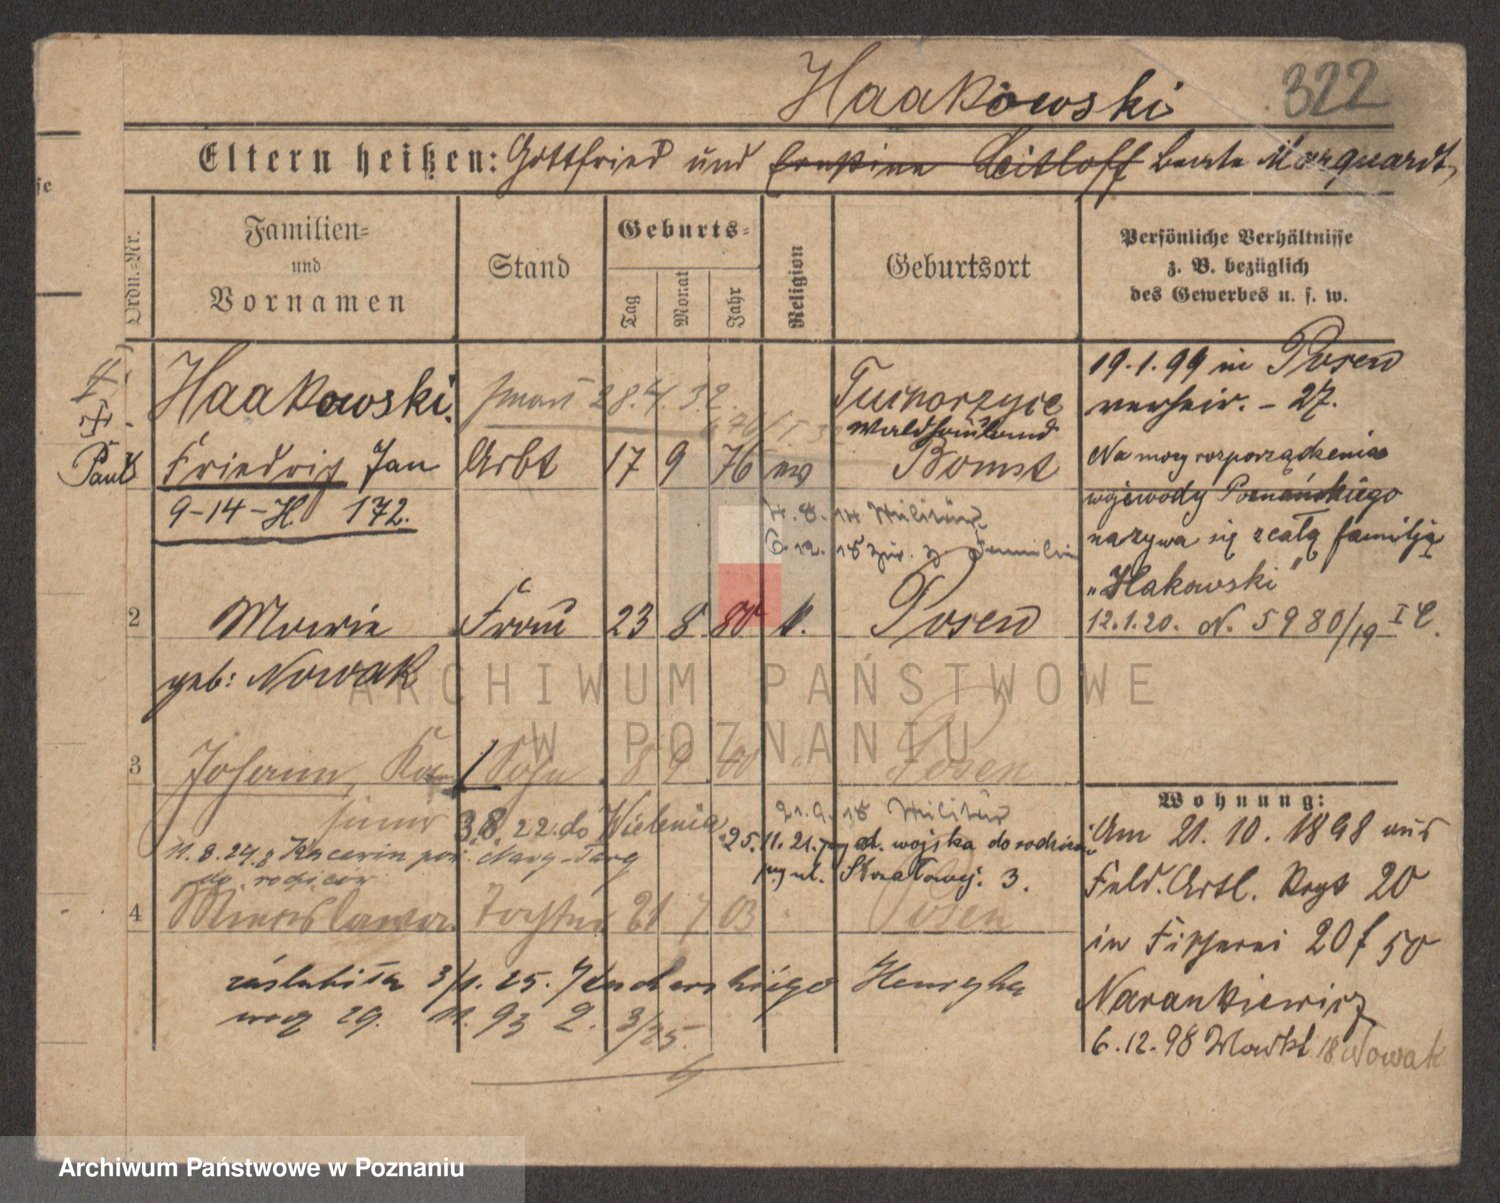 Haakowski 322
Eltern heißen: Gottfried und Beate Marquardt
se
Ordn.-Nr.
Familien-
und
Vornamen
Stand
Geburts-
Tag
Monat
Jahr
Religion
Geburtsort
Persönliche Verhältnisse
z. B. bezüglich
des Gewerbes u. s. w.
Haakowski 28.4.32
Paul Friedrich Jan Arbt 17 9 76 ev Bomst
9-14-H 172.
19.1.99 in Posen
verheir. - 27.
Na mocy rozporządzenia
wojewody Poznańskiego
nazywa się z całą familją
„Hakowski”
12.1.20. N. 5980/19 I C.
4.8.14 Militär
6.12.18 zur. z. Familie
2 Marie Frau 23 8 80 k. Posen
geb: Nowak
3 Johann, Sohn 8 9 00 Posen
3.8.22 do Wielenia
21.9.18 Militär
11.8.24 z
do rodziców
25.11.21. z wojska do rodziców
ul. Strzałowej. 3.
4 Mieroslawa Tochter 21 7 03 Posen
zaślubiła 3/1.25. Henryka
ur. 29. 11. 93 2. 3/25.
Wohnung:
Am 21.10.1898 aus
Feld. Artl. Rgt 20
in Fischerei 20 f 50
Narankiewicz
6.12.98 Markt 18 Nowak
ARCHIWUM PAŃSTWOWE
W POZNANIU
Archiwum Państwowe w Poznaniu